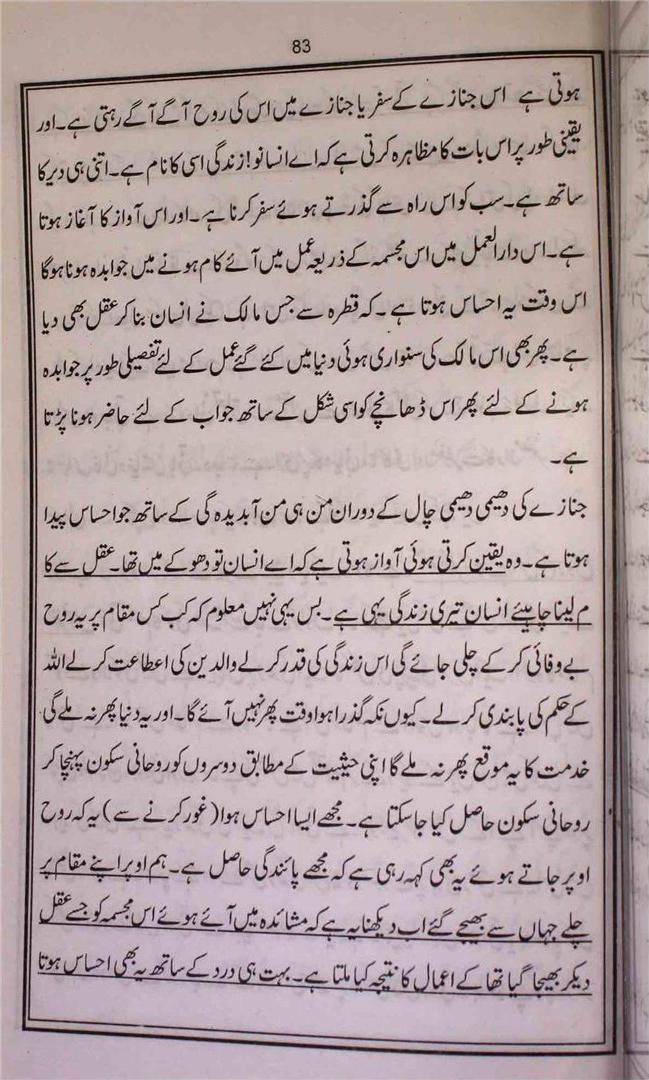 83
ہوتی ہے اس جنازے کے سفر یا جنازے میں اس کی روح آگے آگے رہتی ہے۔اور
یقینی طور پر اس بات کا مظاہرہ کرتی ہے کہ اے انسانو! زندگی اسی کا نام ہے۔اتنی ہی دیر کا
ساتھ ہے۔سب کو اس راہ سے گذرتے ہوئے سفر کرنا ہے۔اور اس آواز کا آغاز ہوتا
ہے۔اس دارالعمل میں اس مجسمہ کے ذریعہ عمل میں آئے کام ہونے میں جوابدہ ہونا ہوگا
اس وقت یہ احساس ہوتا ہے۔کہ قطرہ سے جس مالک نے انسان بنا کر عقل بھی دیا
ہے۔پھر بھی اس مالک کی سنواری ہوئی دنیا میں کئے گئے عمل کے لئے تفصیلی طور پر جوابدہ
ہونے کے لئے پھر اس ڈھانچے کو اسی شکل کے ساتھ جواب کے لئے حاضر ہونا پڑتا
ہے۔
جنازے کی دھیمی دھیمی چال کے دوران من ہی من آبدیدہ گی کے ساتھ جو احساس پیدا
ہوتا ہے۔وہ یقین کرتی ہوئی آواز ہوتی ہے کہ اے انسان تو دھوکے میں تھا۔عقل سے کا
م لینا چاہیئے انسان تیری زندگی یہی ہے۔بس یہی نہیں معلوم کہ کب کس مقام پر یہ روح
بے وفائی کر کے چلی جائے گی اس زندگی کی قدر کر لے والدین کی اعطاعت کر لے اللہ
کے حکم کی پابندی کر لے۔کیوں نکہ گذرا ہوا وقت پھر نہیں آئے گا۔اور یہ دنیا پھر نہ ملے گی۔
خدمت کا یہ موقع پھر نہ ملے گا اپنی حیثیت کے مطابق دوسروں کو روحانی سکون پہنچا کر
روحانی سکون حاصل کیا جا سکتا ہے۔مجھے ایسا احساس ہوا (غور کرنے سے) یہ کہ روح
اوپر جاتے ہوئے یہ بھی کہہ رہی ہے کہ مجھے پائندگی حاصل ہے۔ہم اوپر اپنے مقام پر
چلے جہاں سے بھیجے گئے اب دیکھنا یہ ہے کہ مشائدہ میں آئے ہوئے اس مجسمہ کو جسے عقل
دیکر بھیجا گیا تھا کے اعمال کا نتیجہ کیا ملتا ہے۔بہت ہی درد کے ساتھ یہ بھی احساس ہوتا